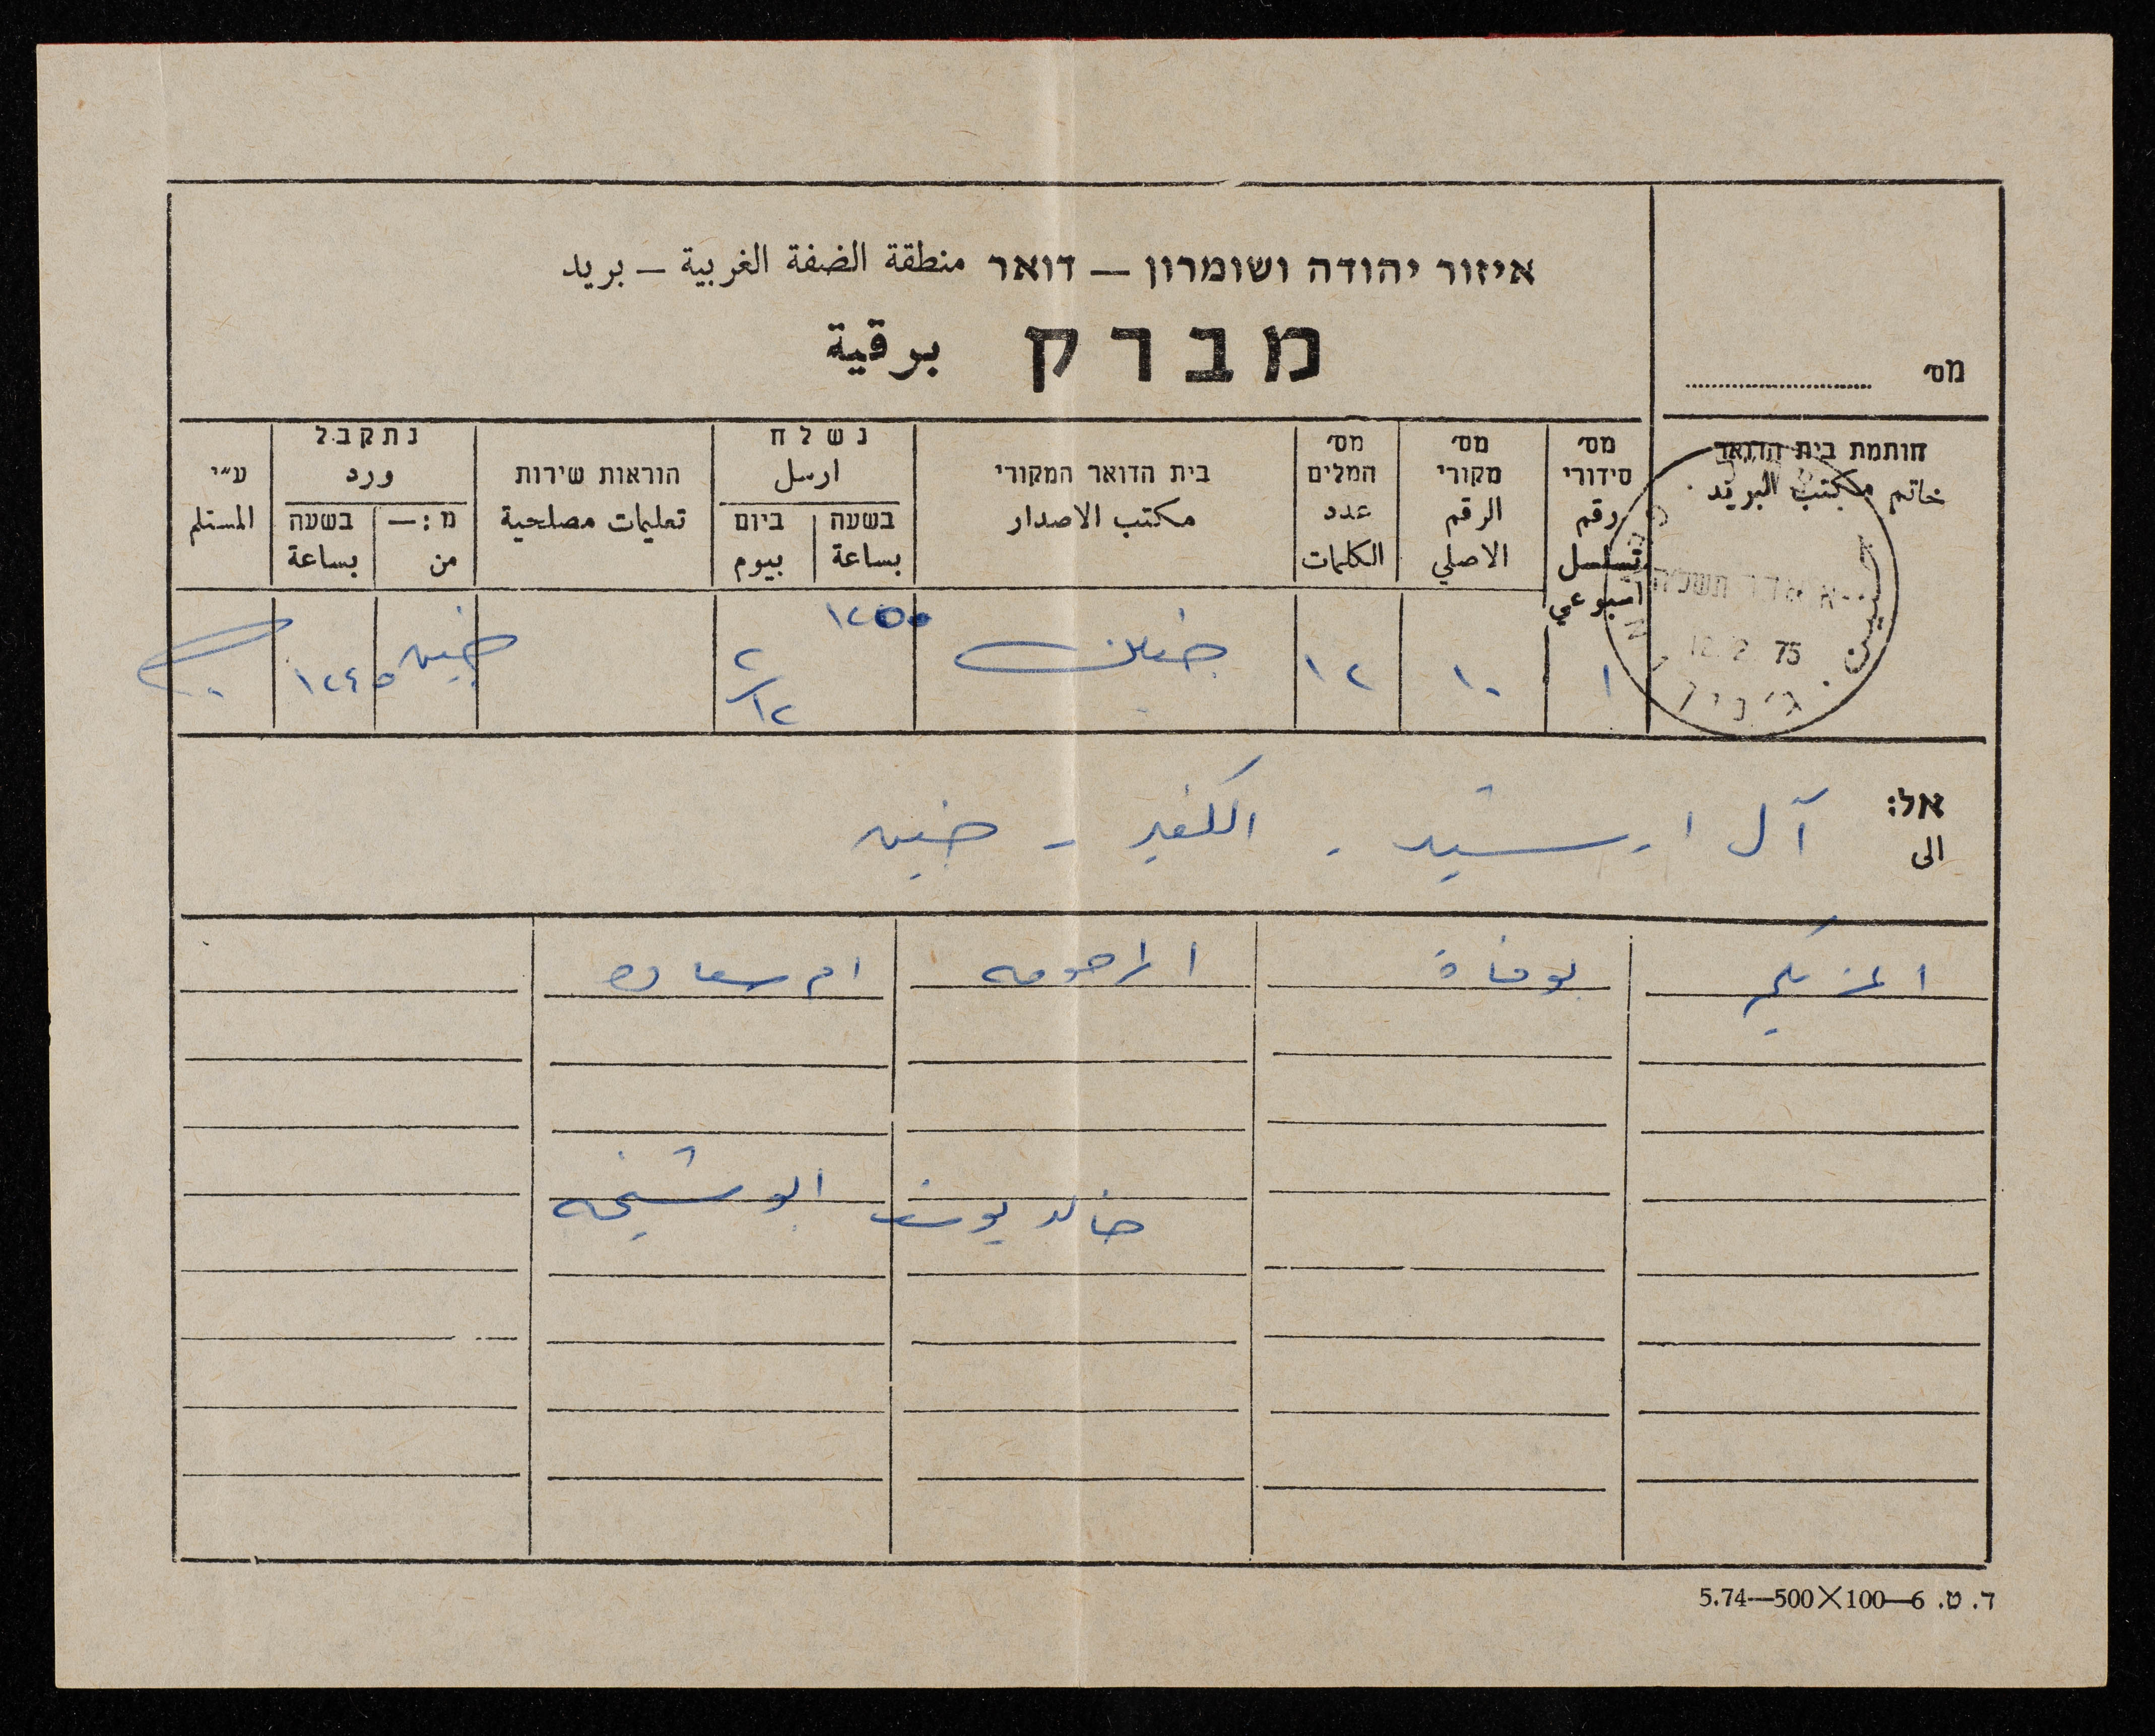 איזור יהודה ושומרון — דואר منطقة الضفة الغربية — بريد
מברק برقية
מס׳
חותמת בית הדואר
خاتم مكتب البريد
מס׳ סידורי رقم تسلسل اسبوعي
מס׳ מקורי الرقم الاصلي
מס׳ המלים عدد الكلمات
בית הדואר המקורי مكتب الاصدار
נשלח ارسل
בשעה بساعة
ביום بيوم
הוראות שירות تعليمات مصلحية
נתקבל ورد
מ:— من
בשעה بساعة
ע״י المستلم
١ ١٠ ١٢ جنين ١٢٥٥ ٢/١٢ جنين ١٢٤٥
א אדר תשל״ה
12. 2 75
جنين
ג׳נין
אל: الى
آل ارشيد - الكفير - جنين
اعزيكم بوفاة المرحومه ام سعاده
خالد يوسف ابو شيخه
ד. ט. 6—100×500—5.74